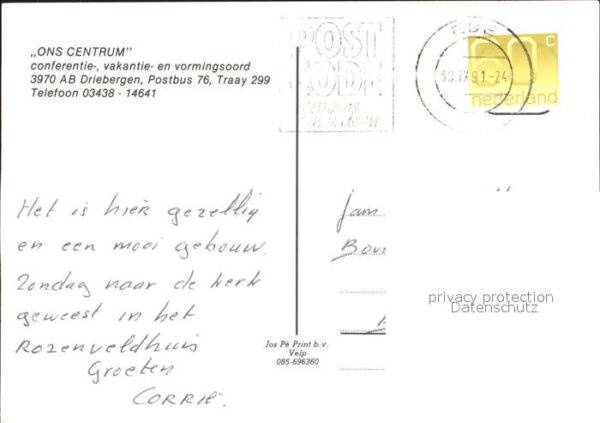 „ONS CENTRUM"
conferentie-, vakantie- en vormingsoord
3970 AB Driebergen, Postbus 76, Traay 299
Telefoon 03438 - 14641
POST
CODE
EDE
30.IX.91.-24
60 c
nederland
Het is hier gezellig
en een mooi gebouw.
Zondag naar de kerk
geweest in het
Rozenveldhuis
Groeten
CORRIE.
Jos Pé Print b.v.
Velp
085-696360
fam
privacy protection
Datenschutz